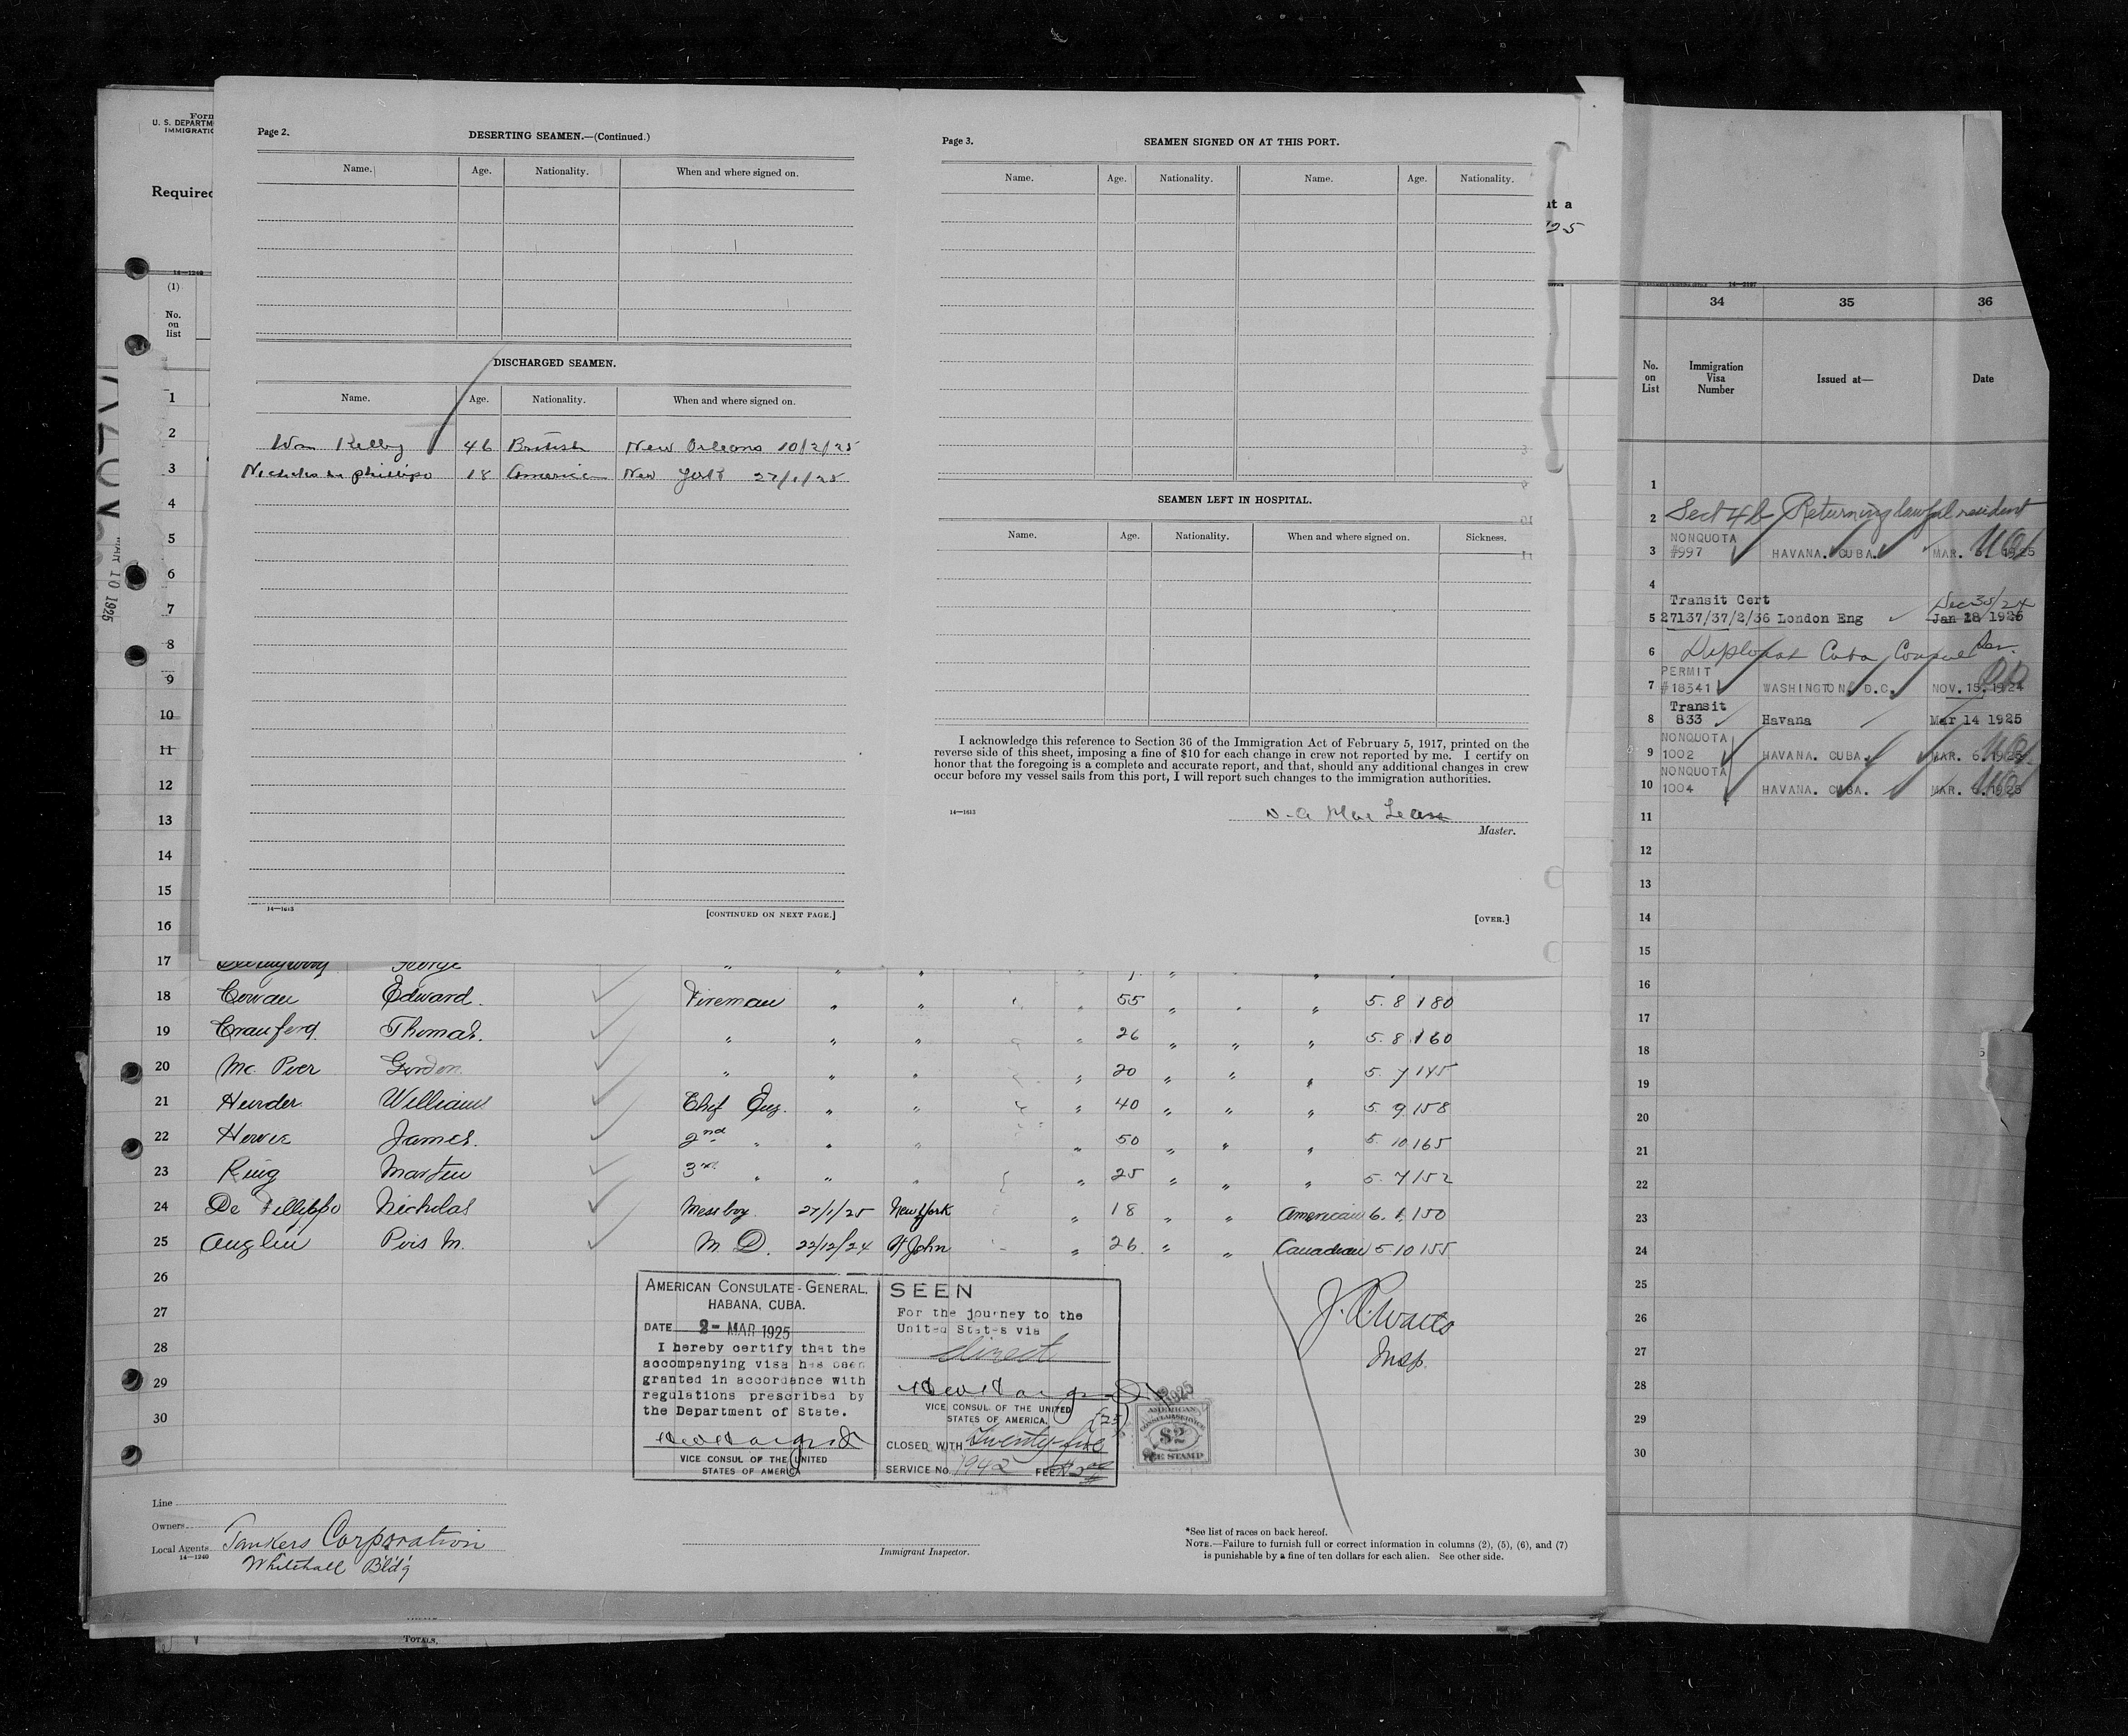 Form
U. S. DEPARTM
IMMIGRATIO
Required
14—1240
(1)
No.
on
list
Page 2.
DESERTING SEAMEN.—(Continued.)
Name. Age. Nationality. When and where signed on.
DISCHARGED SEAMEN.
Name. Age. Nationality. When and where signed on.
Wm Kelly 46 British New Orleans 10/2/25
Nicholas de phillipo 18 America New York 27/1/25
14—1613
[CONTINUED ON NEXT PAGE.]
Page 3.
SEAMEN SIGNED ON AT THIS PORT.
Name. Age. Nationality. Name. Age. Nationality.
SEAMEN LEFT IN HOSPITAL.
Name. Age. Nationality. When and where signed on. Sickness.
I acknowledge this reference to Section 36 of the Immigration Act of February 5, 1917, printed on the
reverse side of this sheet, imposing a fine of $10 for each change in crew not reported by me. I certify on
honor that the foregoing is a complete and accurate report, and that, should any additional changes in crew
occur before my vessel sails from this port, I will report such changes to the immigration authorities.
14—1613
Master.
[OVER.]
at a
MAR 10 1925
1
2
3
4
5
6
7
8
9
10
11
12
13
14
15
16
17 George
18 Cowan Edward. Fireman " " " 55 " " " 5. 8 180
19 Crauford. Thomas. " " " " 26 " " " 5. 8 160
20 Mc. Peer Gordon. " " " " 20 " " " 5. 7 145
21 Hunder William Chif Eng. " " " 40 " " " 5. 9 158
22 Howie James. 2nd " " " " 50 " " " 5. 10 165
23 King Martin 3rd " " " " 25 " " " 5. 7 152
24 De Fillippo Nicholas Mess boy. 27/1/25 New York " 18 " " American 6. 1. 150
25 Anglin M. M. D. 22/12/24 St John " 26 " " Canadian 5 10 155
26
27
28
29
30
AMERICAN CONSULATE-GENERAL,
HABANA, CUBA.
DATE 2- MAR 1925
I hereby certify that the
accompanying visa has been
granted in accordance with
regulations prescribed by
the Department of State.
VICE CONSUL OF THE UNITED
STATES OF AMERICA
SEEN
For the journey to the
United States via
direct
VICE CONSUL OF THE UNITED
STATES OF AMERICA.
(25)
CLOSED WITH Twenty-five
SERVICE NO. 1942 FEE
AMERICAN
CONSULAR SERVICE
$2
FEE STAMP
Insp.
Line
Owners
Local Agents
14—1240
Tankers Corporation
Whitehall Bld'g
Immigrant Inspector.
*See list of races on back hereof.
NOTE.—Failure to furnish full or correct information in columns (2), (5), (6), and (7)
is punishable by a fine of ten dollars for each alien. See other side.
TOTALS.
34 35 36
No.
on
List
Immigration
Visa
Number
Issued at—
Date
1
2 Sect 4b Returning lawful resident
NONQUOTA
3 #997 HAVANA. CUBA. MAR. 1925
4
Transit Cert Dec 30/24
5 27137/37/2/36 London Eng Jan 28 1925
6 Diplomat Cuba Consul
PERMIT
7 #18341 WASHINGTON D.C. NOV. 15. 1924
Transit
8 833 Havana Mar 14 1925
NONQUOTA
9 1002 HAVANA. CUBA. MAR. 6. 1925
NONQUOTA
10 1004 HAVANA. CUBA. MAR. 6. 1925
11
12
13
14
15
16
17
18
19
20
21
22
23
24
25
26
27
28
29
30